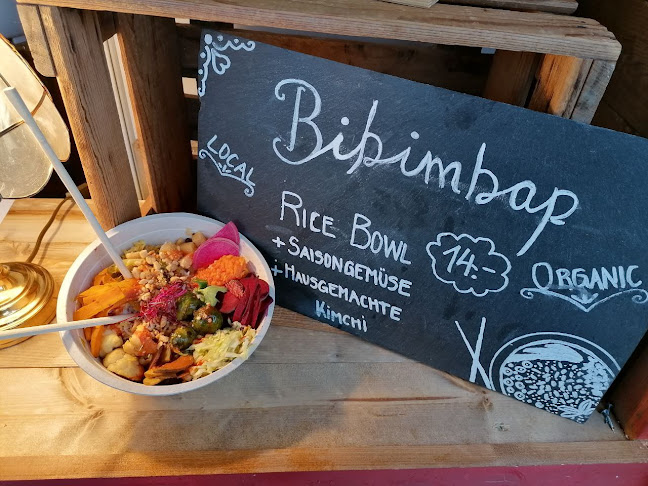 Bibimbap
LOCAL
RICE BOWL
+ SAISONGEMÜSE
+ HAUSGEMACHTE
KIMCHI
14.-
ORGANIC